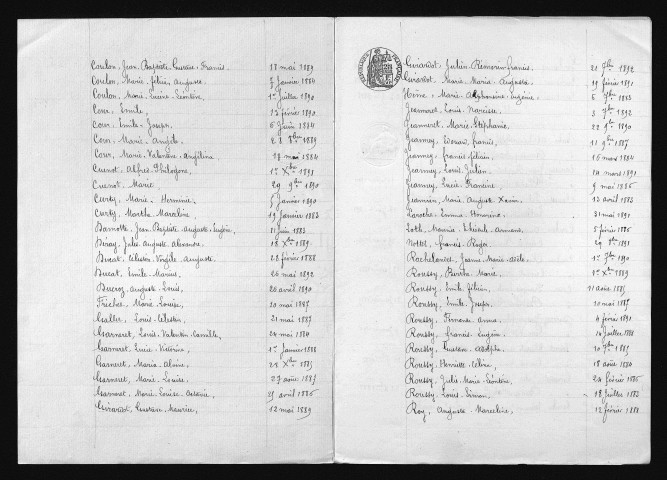 Coulon, Jean Baptiste Gustave Francis 18 mai 1889
Coulon, Marie Félicie Augusta. 7 janvier 1884
Coulon Marie Lucine Léontine, 1er Juillet 1890
Cour, Emile 13 février 1890
Cour, Emile Joseph, 6 juin 1884
Cour, Marie Angèle 28 8bre 1889
Cour, Marie Valentine Angélina 18 mai 1884
Cuenot Alfred Philogone, 1er Xbre 1893
Cuenot Marie 29 9bre 1890
Curty, Marie Hermine, 5 janvier 1890
Curty, Marthe Maraline 19 janvier 1883
Jean Baptiste Auguste Eugène, 21 juin 1883
Jules Auguste Alexandre, 18 Xbre 1889
Bucat Célestin Virgile Auguste. 28 février 1888
Bucat, Emile Marius, 26 mai 1892
Bucroz, Auguste Louis, 20 avril 1890
Friches, Marie Louise, 20 mai 1887
Galler, Louis Célestin, 21 mai 1887
Garneret, Louis Valentin Camille, 24 mai 1880
Garneret, Lucie Victorine, 1er janvier 1888
Garneret, Maria Aloïse, 28 Xbre 1885
Garneret, Marie Louise, 27 août 1885
Garneret Marie Louise 25 avril 1886
Girardot, Gustave Maurice, 12 mai 1889
Girardot, Julien Francis. 21 9bre 1892
Girardot, Marie Maria Augusta 19 février 1891
Hême Marie Alphonsine Eugénie, 6 7bre 1883
Jeanneret Louis Narcisse 3 7bre 1892
Jeanneret Marie Stéphanie, 22 9bre 1890
Jeanney, Edouard Francis, 11 9bre 1887
Jeanney, Francis Félicien 16 mars 1884
Jeanney Louis Julien 14 mars 1891
Jeanney, Lucie Francine 9 mai 1886
Jeannin Marie August 13 avril 1883
Laroche Emma Honorine 31 mai 1891
Loth, 5 février 1886
Nottet, Francis Roger 29 8bre 1891
Rochelandet, Jeanne Marie Adèle 1er 7bre 1890
Roussy, Bertha Marie. 1er Xbre 1889
Roussy, Emile Félicien, 21 août 1885
Roussy, Emile Joseph, 20 mai 1887
Roussy Fernande Anna. 4 février 1891
Roussy Francis Eugène 14 juillet 1888
Roussy, Gustave Adolphe 10 9bre 1885
Roussy Céline, 18 août 1884
Roussy, Julie Marie Léontine, 24 février 1886
Roussy, Louis 18 Juillet 1883
Roy, Auguste Marceline, 12 février 1888